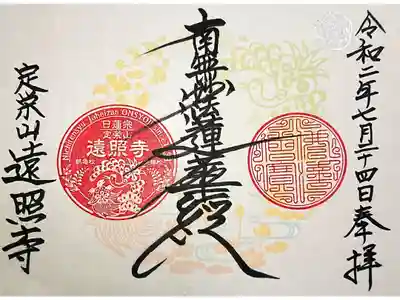 令和二年七月二十四日奉拝
南無妙法蓮華経
日蓮宗
定栄山
遠照寺
定栄山遠照寺